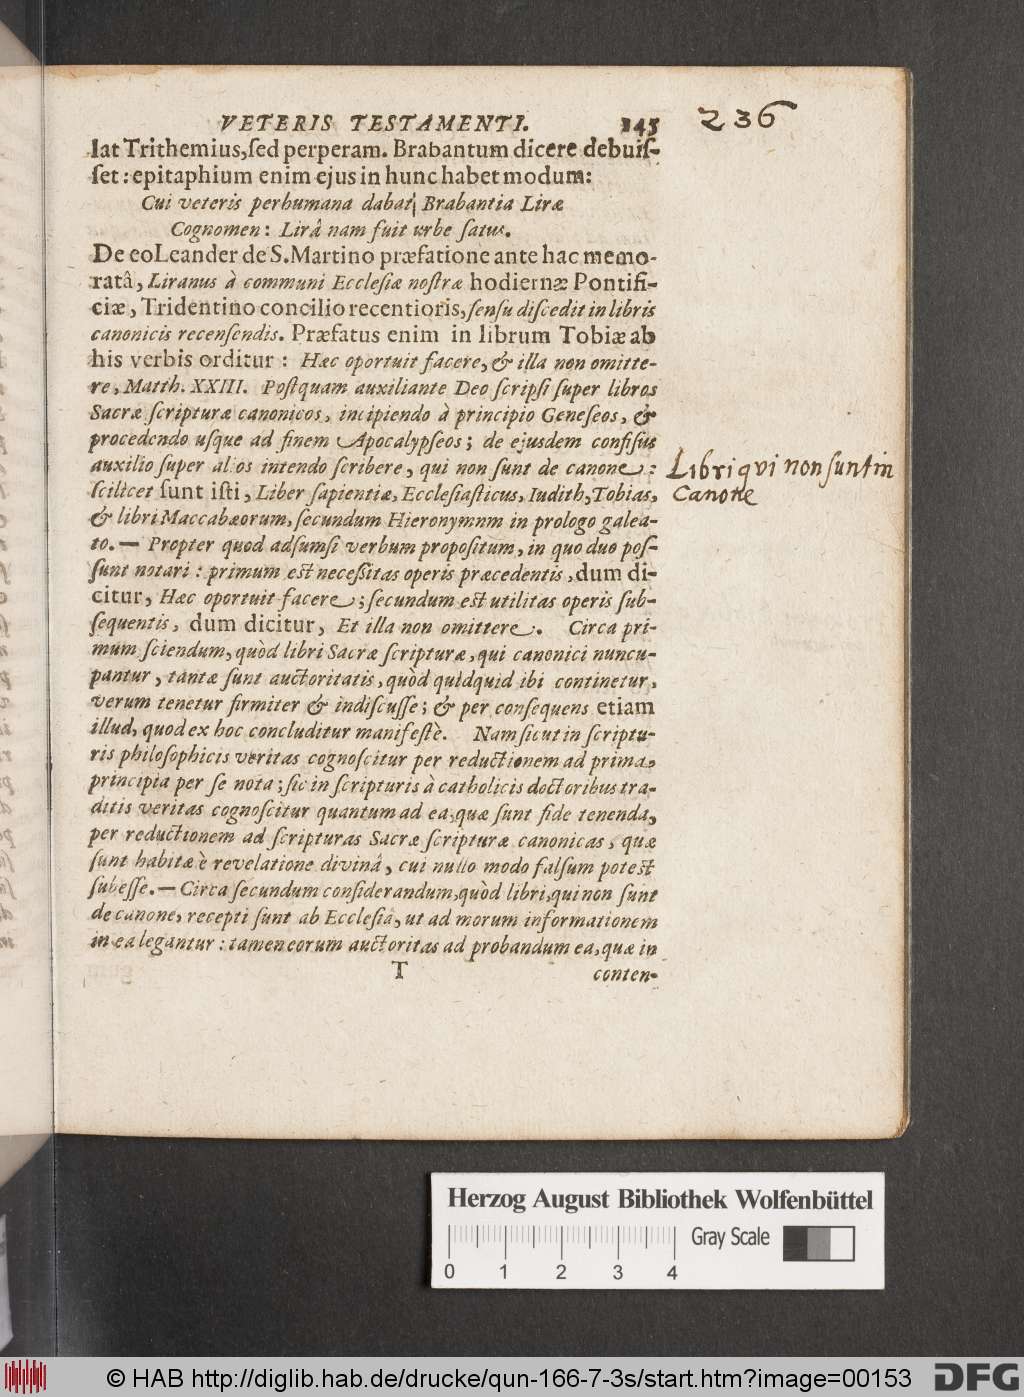 VETERIS TESTAMENTI. 145
236
lat Trithemius, sed perperam. Brabantum dicere debuis-
set: epitaphium enim ejus in hunc habet modum:
Cui veteris perhumana dabat Brabantia Liræ
Cognomen: Lirâ nam fuit urbe satus.
De eo Leander de S. Martino præfatione ante hac memo-
ratâ, Liranus à communi Ecclesiæ nostræ hodiernæ Pontifi-
ciæ, Tridentino concilio recentioris, sensu discedit in libris
canonicis recensendis. Præfatus enim in librum Tobiæ ab
his verbis orditur: Hæc oportuit facere, & illa non omitte-
re, Matth. XXIII. Postquam auxiliante Deo scripsi super libros
Sacræ scripturæ canonicos, incipiendo à principio Geneseos, &
procedendo usque ad finem Apocalypseos; de ejusdem confisus
auxilio super alios intendo scribere, qui non sunt de canone:
scilicet sunt isti, Liber sapientiæ, Ecclesiasticus, Iudith, Tobias,
& libri Maccabæorum, secundum Hieronymnm in prologo galea-
to. — Propter quod adsumsi verbum propositum, in quo duo pos-
sunt notari: primum est necessitas operis præcedentis, dum di-
citur, Hæc oportuit facere; secundum est utilitas operis sub-
sequentis, dum dicitur, Et illa non omittere. Circa pri-
mum sciendum, quòd libri Sacræ scripturæ, qui canonici nuncu-
pantur, tantæ sunt auctoritatis, quòd quidquid ibi continetur,
verum tenetur firmiter & indiscusse; & per consequens etiam
illud, quod ex hoc concluditur manifestè. Nam sicut in scriptu-
ris philosophicis veritas cognoscitur per reductionem ad prima
principia per se nota; sic in scripturis à catholicis doctoribus tra-
ditis veritas cognoscitur quantum ad ea, quæ sunt fide tenenda,
per reductionem ad scripturas Sacræ scripturæ canonicas, quæ
sunt habitæ è revelatione divinâ, cui nullo modo falsum potest
subesse. — Circa secundum considerandum, quòd libri, qui non sunt
de canone, recepti sunt ab Ecclesiâ, ut ad morum informationem
in ea legantur: tamen eorum auctoritas ad probandum ea, quæ in
T conten-
Libri qvi non sunt in
Canone
Herzog August Bibliothek Wolfenbüttel
0 1 2 3 4
Gray Scale
© HAB http://diglib.hab.de/drucke/qun-166-7-3s/start.htm?image=00153
DFG